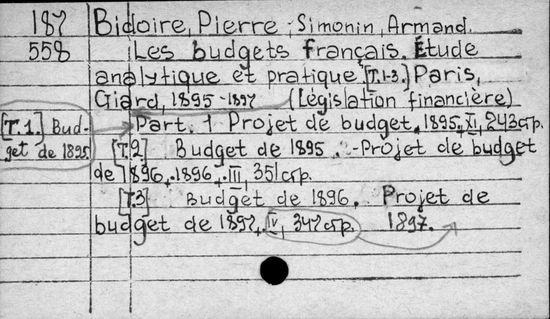 187 Bidoire, Pierre; Simonin, Armand.
558 Les budgets français. Étude
analytique et pratique [T.1-3.] Paris,
Giard, 1895-1897 (Législation financière)
[T.1.] Bud- Part. 1 Projet de budget, 1895, XI, 243 стр.
get de 1895 [T.2] Budget de 1895. - Projet de budget
de 1896, 1896, III, 351 стр.
[T.3] Budget de 1896. Projet de
budget de 1897, IV, 347 стр. 1897.